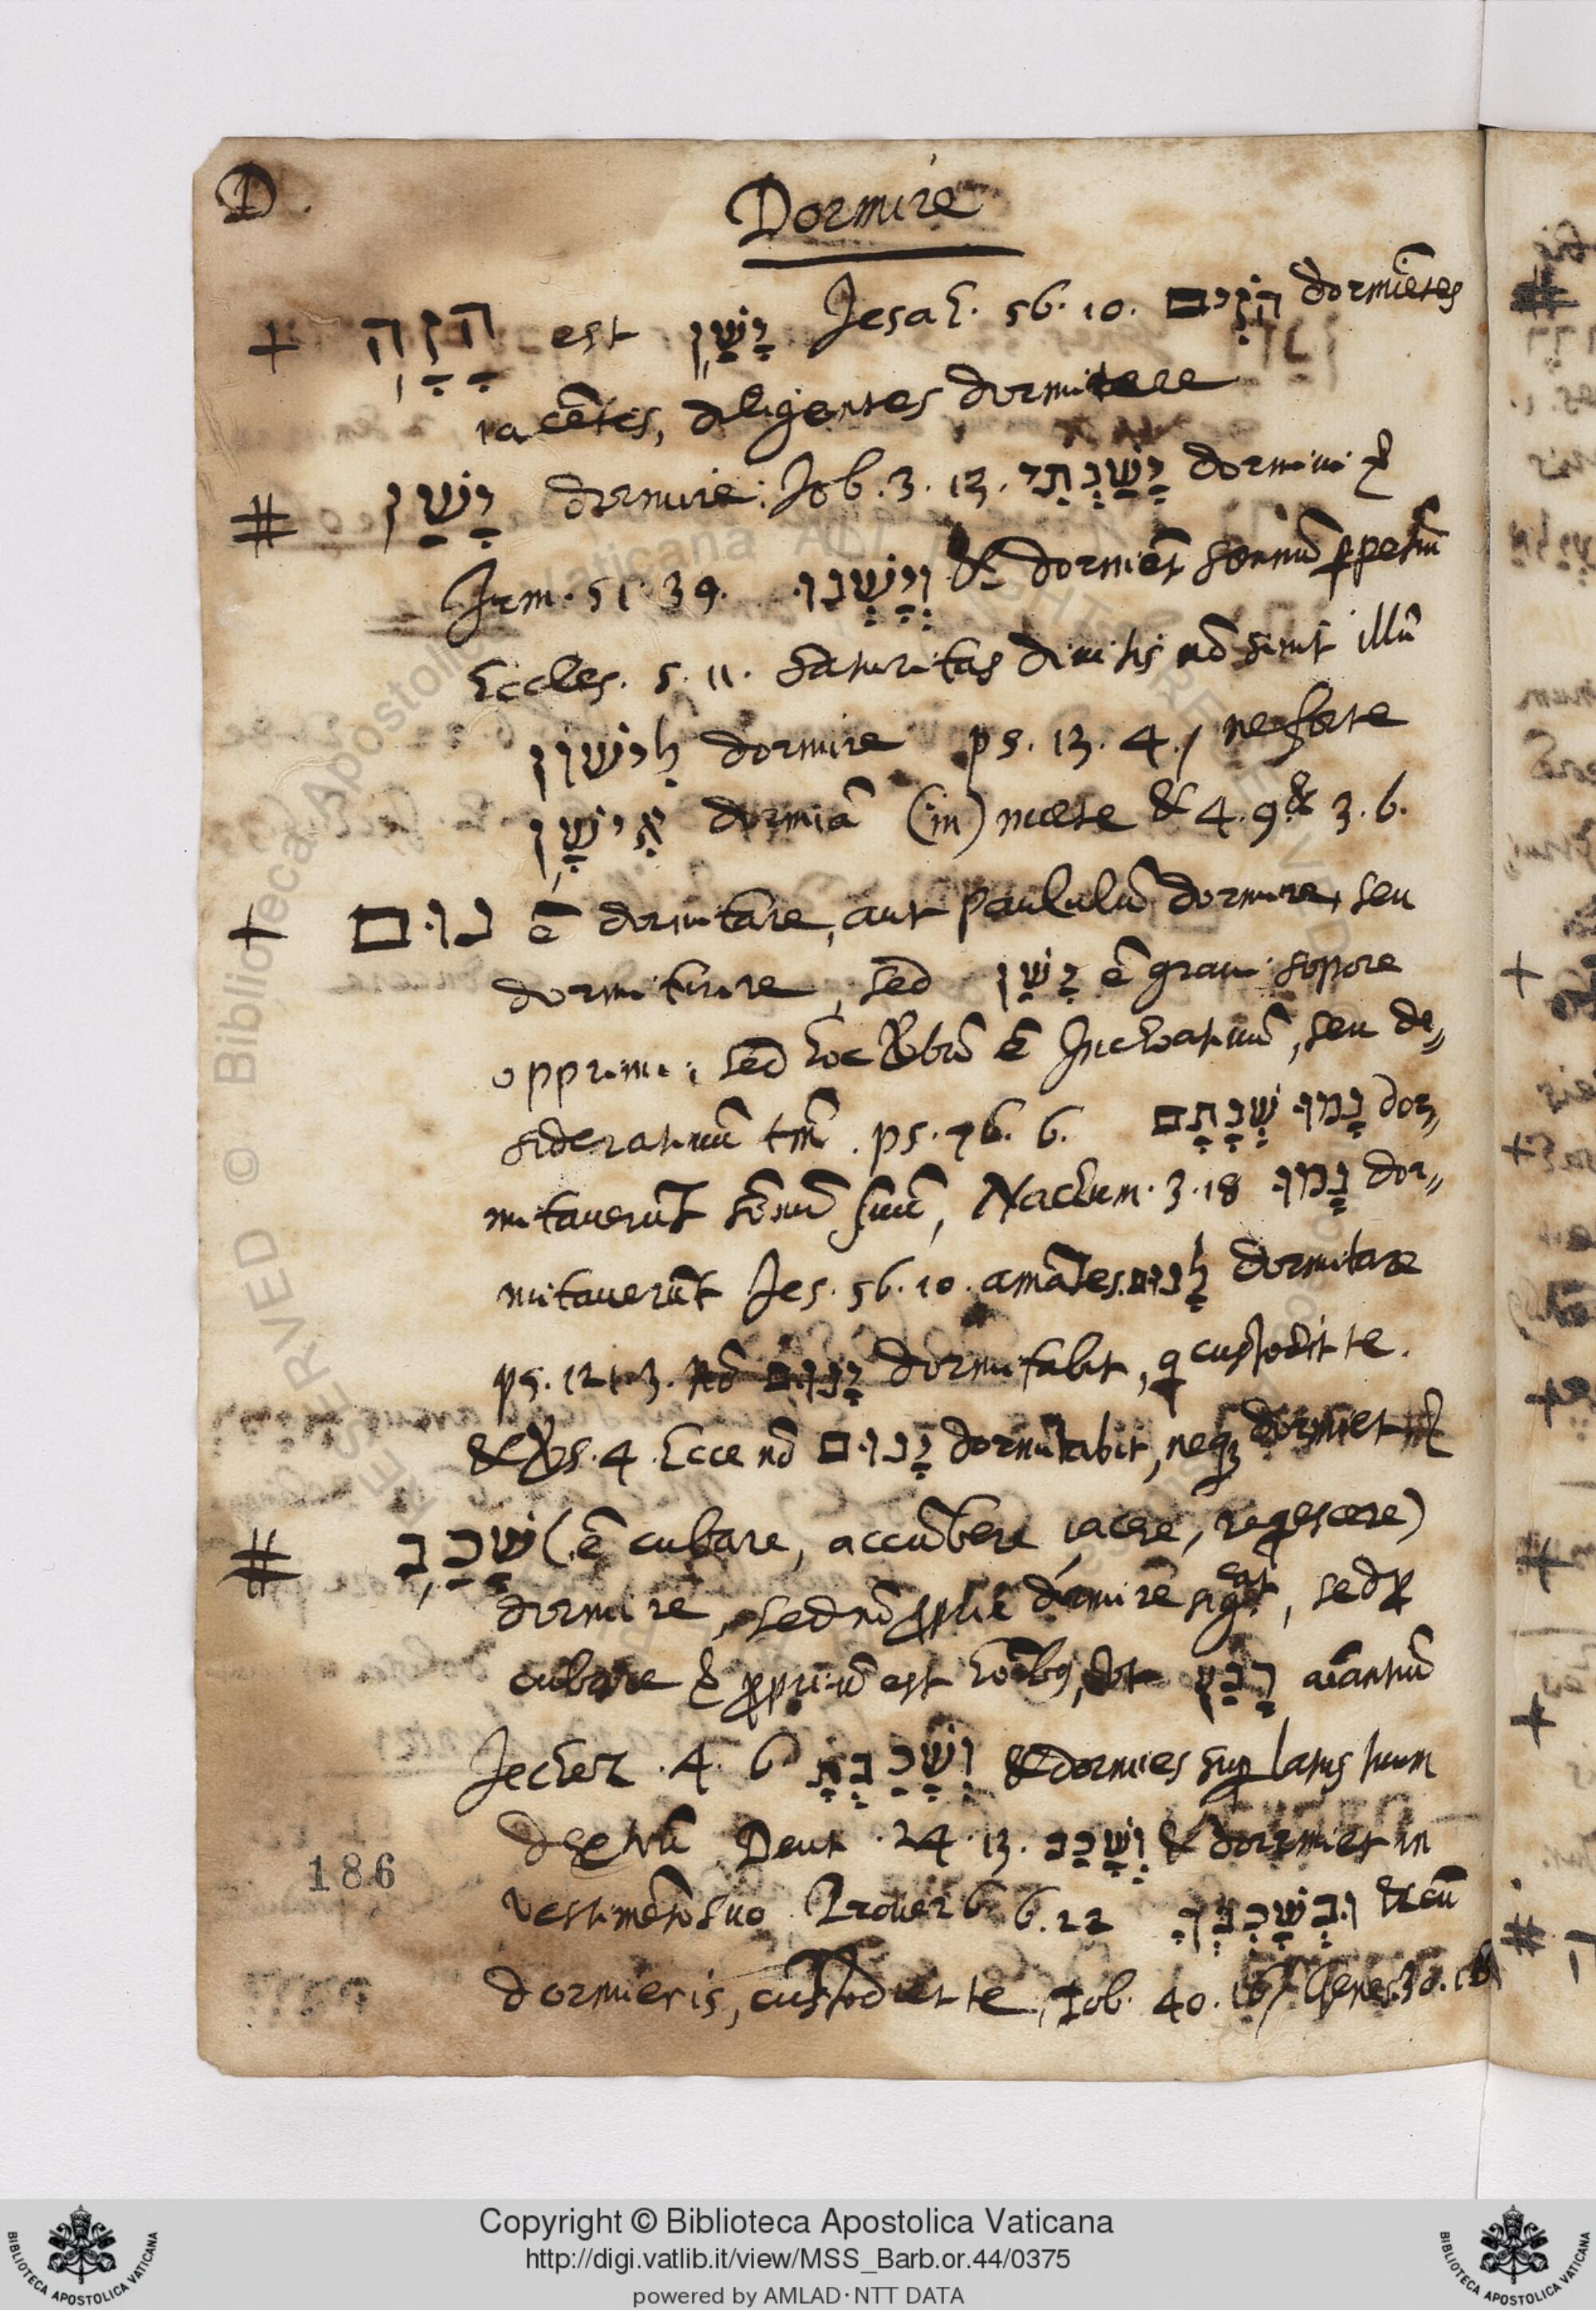 D.
Dormire
+ הָזָה est יָשַׁן Jesaē. 56. 10. הֹזִים dormiētes
iacētes, diligentes dormitare
# יָשַׁן dormire: Job. 3. 13. יָשַׁנְתִּי dormiui
Jrm. 51. 39. וְיָשְׁנוּ & dormiēt somnū ppetuū
Eccles. 5. 11. Saturitas diuitis nō sinit illū
לִישׁוֹן dormire ps. 13. 4., ne forte
אִישָׁן dormiā (in) morte & 4. 9. & 3. 6.
+ נוּם ē dormitare, aut paululū dormire, seu
dormiturire, sed יָשַׁן ē graui sopore
opprimi; sed hoc Vbū ē Inchoatiuū, seu de„
sideratiuū tm̄. ps. 76. 6. נָמוּ שְׁנָתָם dor„
mitauerūt sōnū suū, Nachum. 3. 18 נָמוּ dor„
mitauerūt Jes. 56. 10. amātes לָנוּם dormitare
ps. 121. 3. nō יָנוּם dormitabit, q custodit te.
& Vs. 4. Ecce nō יָנוּם dormitabit, neq; dormiet
# שָׁכַב (ē cubare, accūbere, iacere, reqescere)
dormire, sed nō pprie dormire sigat, sed p
cubare & ppriū est hoībs, sōt רָבַץ aīantiū
Jechez. 4. 6 וְשָׁכַבְתָּ & dormies sup latus tuum
dextrū Deut. 24. 13. וְשָׁכַב & dormiet in
vestimēto suo Prouerb. 6. 22 וּבְשָׁכְבְּךָ & cū
dormieris, custodiet te, Iob. 40. 16, Genes. 30. 16
186
Copyright © Biblioteca Apostolica Vaticana
http://digi.vatlib.it/view/MSS_Barb.or.44/0375
powered by AMLAD·NTT DATA
BIBLIOTECA APOSTOLICA VATICANA
BIBLIOTECA APOSTOLICA VATICANA